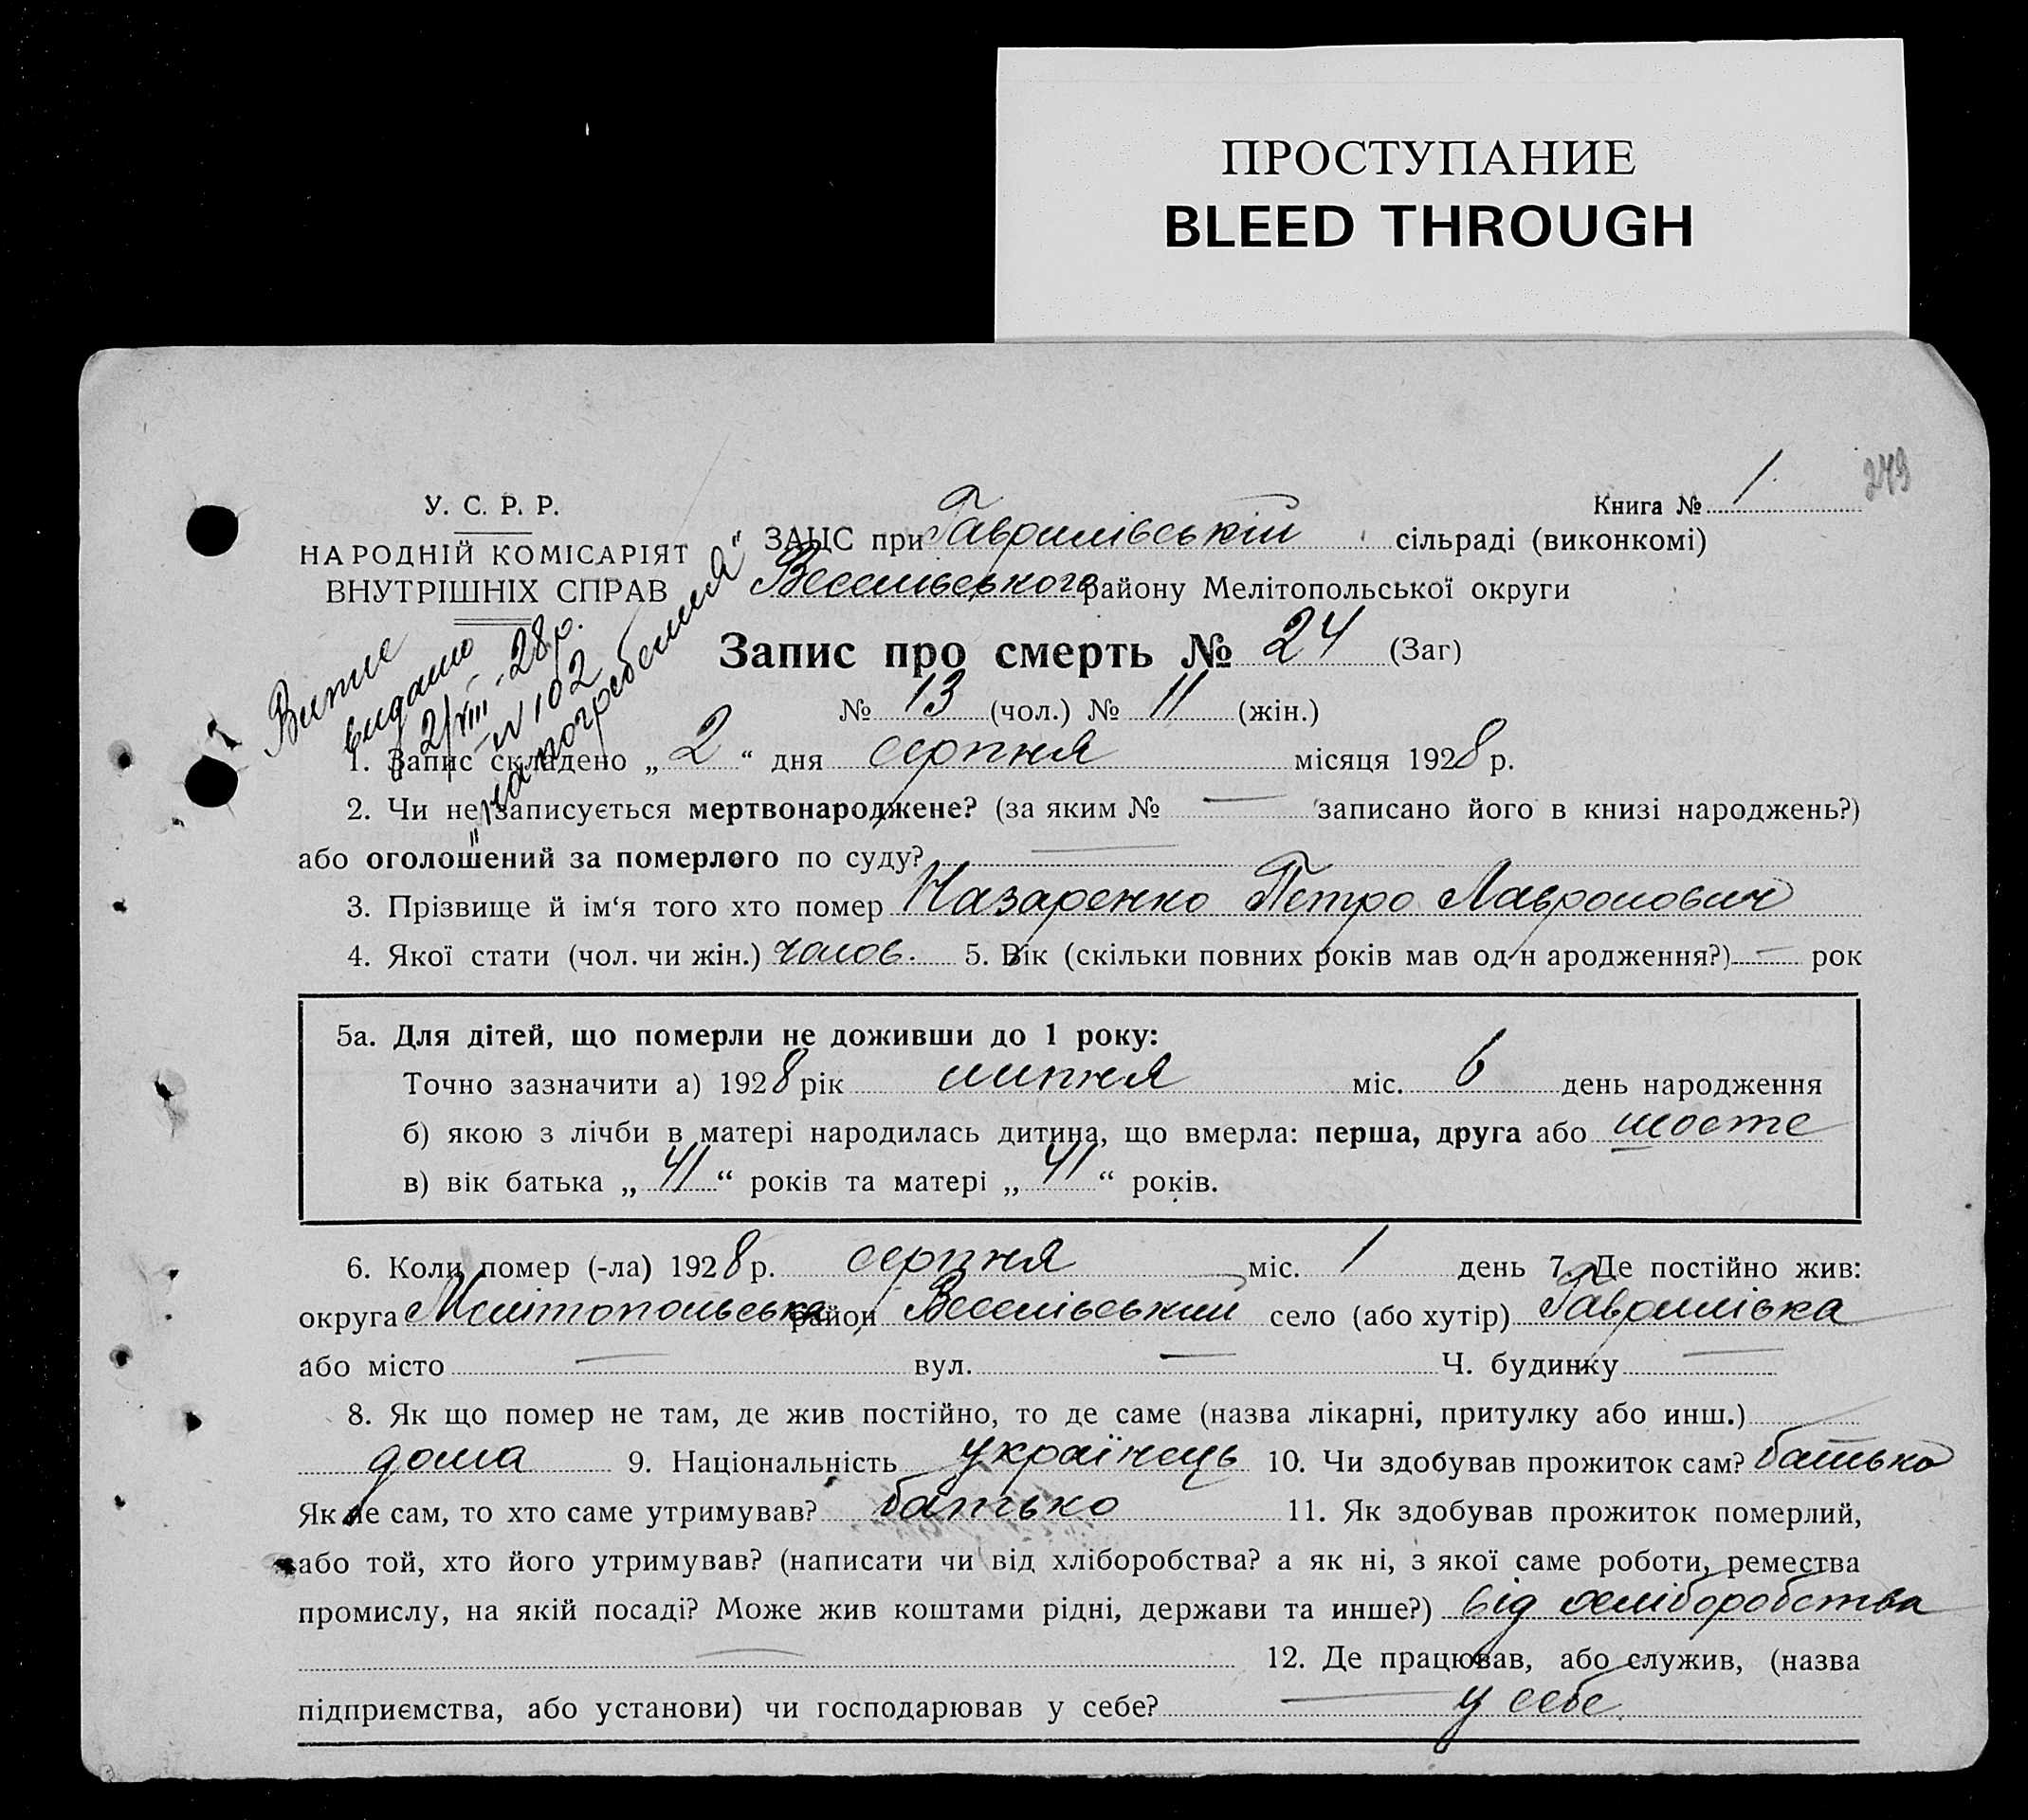 ПРОСТУПАНИЕ
BLEED THROUGH
249
Книга № 1
У. С. Р. Р.
НАРОДНІЙ КОМІСАРІЯТ
ВНУТРІШНІХ СПРАВ
Витяг
видано
2/VIII-28р.
№ 102
"на погребения"
ЗАЦС при Гаврилівській сільраді (виконкомі)
Веселівського району Мелітопольської округи
Запис про смерть № 24 (Заг)
№ 13 (чол.) № 11 (жін.)
1. Запис складено „ 2 “ дня серпня місяця 1928 р.
2. Чи не записується мертвонароджене? (за яким № — записано його в книзі народжень?)
або оголошений за померлого по суду? —
3. Прізвище й ім‘я того хто помер Назаренко Петро Лавронович
4. Якої стати (чол. чи жін.) чолов. 5. Вік (скільки повних років мав од н ародження?) — рок
5а. Для дітей, що померли не доживши до 1 року:
Точно зазначити а) 1928 рік липня міс. 6 день народження
б) якою з лічби в матері народилась дитина, що вмерла: перша, друга або шосте
в) вік батька „ 41 “ років та матері „ 41 “ років.
6. Коли помер (-ла) 1928 р. серпня міс. 1 день 7. Де постійно жив:
округа Мелітопольська район Веселівський село (або хутір) Гаврилівка
або місто — вул. — Ч. будинку —
8. Як що помер не там, де жив постійно, то де саме (назва лікарні, притулку або инш.)
дома 9. Національність українець 10. Чи здобував прожиток сам? батько
Як не сам, то хто саме утримував? батько 11. Як здобував прожиток померлий,
або той, хто його утримував? (написати чи від хліборобства? а як ні, з якої саме роботи, ремества
промислу, на якій посаді? Може жив коштами рідні, держави та инше?) від хліборобства
— 12. Де працював, або служив, (назва
підприємства, або установи) чи господарював у себе? — у себе